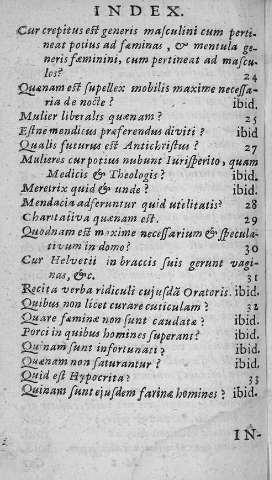 INDEX.
Cur crepitus est generis masculini cum perti-
neat potius ad fæminas, & mentula ge-
neris fæminini, cum pertineat ad mascu-
los? 24
Quænam est supellex mobilis maxime necessa-
ria de nocte? ibid.
Mulier liberalis quænam? 25
Estne mendicus præferendus diviti? ibid
Qualis futurus est Antichristus? 27
Mulieres cur potius nubunt Jurisperito, quam
Medicis & Theologis? ibid.
Meretrix quid & unde? ibid.
Mendacia adferuntur quid utelitatis? 28
Charitativa quænam est. 29
Quodnam est maxime necessarium & specula-
tivum in domo? 30
Cur Helvetii in braccis suis gerunt vagi-
nas, &c. 31
Recita verba ridiculi cujusdā Oratoris. ibid.
Quibus non licet curare cuticulam? 32
Quare fæminæ non sunt caudatæ? ibid.
Porci in quibus homines superant? ibid.
Quinam sunt infortunati? ibid.
Quænam non saturantur? ibid.
Quid est Hypocrita? 33
Quinam sunt ejusdem farinæ homines? ibid.
IN-